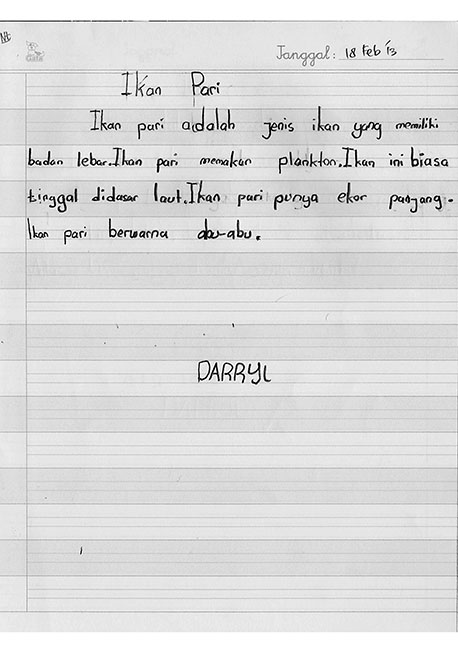 Tanggal: 18 Feb '13
Ikan Pari
Ikan pari aidalah jenis ikan yang memiliki
badan lebar.Ikan pari memakan plankton.Ikan ini biasa
tinggal didasar laut.Ikan pari punya ekor panjang.
Ikan pari berwarna abu-abu.
DARRYL